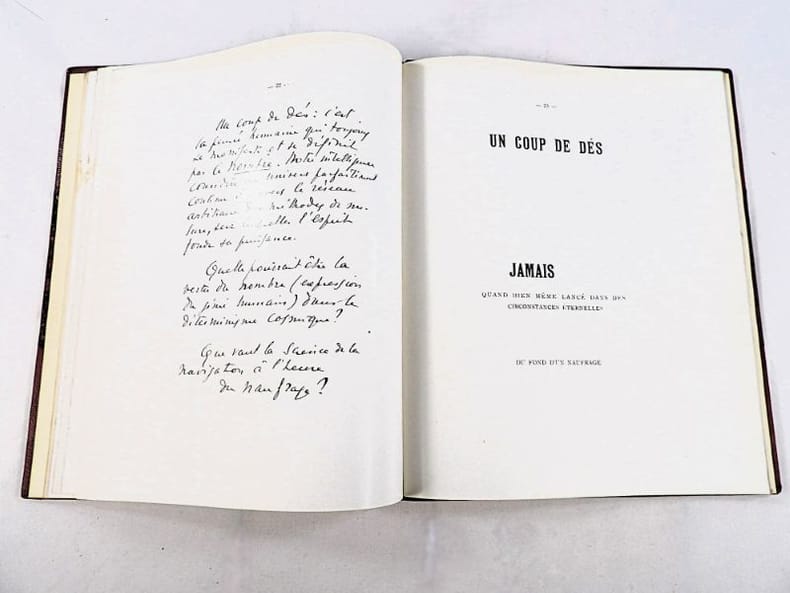 — 22 —
Un coup de dés : c'est
la pensée humaine qui toujours
se manifeste et se définit
par le Nombre. Notre intelligence
univers parfaitement
continu le réseau
arbitraire méthodes de me-
sure, sur l'esprit
fonde sa puissance.
Quelle pourrait être la
vertu du nombre (expression
du génie humain) dans le
déterminisme cosmique ?
Que vaut la Science de la
navigation à l'heure
du naufrage ?
— 23 —
UN COUP DE DÉS
JAMAIS
QUAND BIEN MÊME LANCÉ DANS DES
CIRCONSTANCES ÉTERNELLES
DU FOND D'UN NAUFRAGE